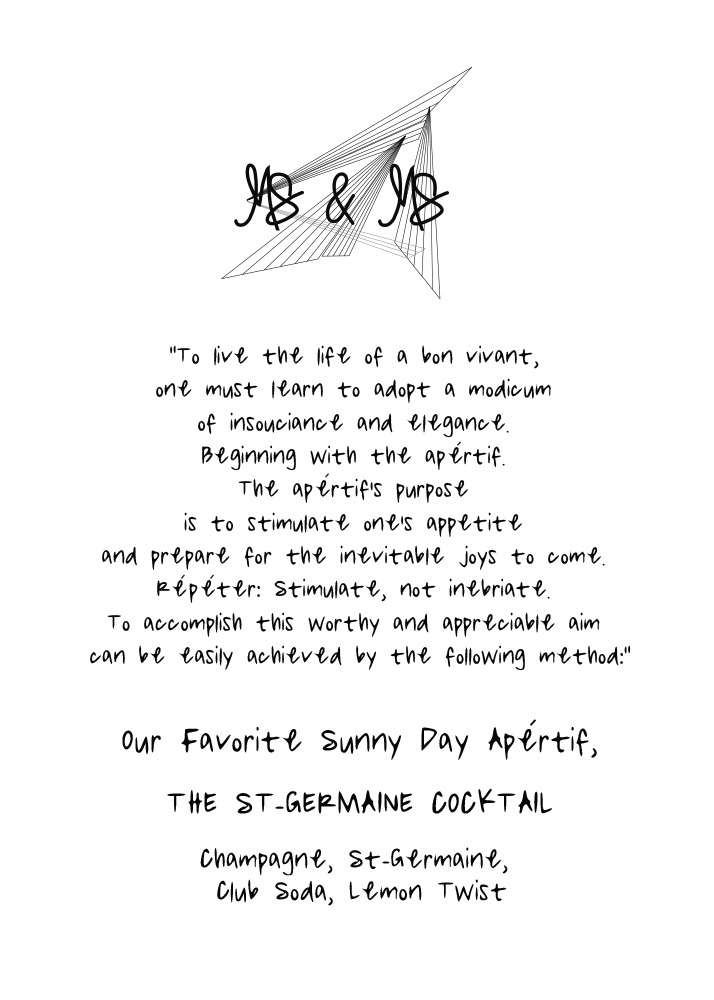 MS & MS
"To live the life of a bon vivant,
one must learn to adopt a modicum
of insouciance and elegance.
Beginning with the apértif.
The apértif's purpose
is to stimulate one's appetite
and prepare for the inevitable joys to come.
Répéter: Stimulate, not inebriate.
To accomplish this worthy and appreciable aim
can be easily achieved by the following method:"
Our Favorite Sunny Day Apértif,
THE ST-GERMAINE COCKTAIL
Champagne, St-Germaine,
Club Soda, Lemon Twist